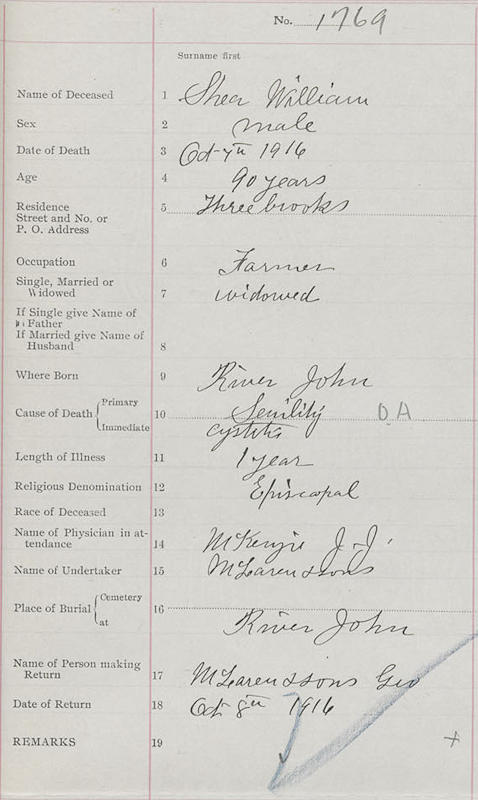 No. 1769
Surname first
Name of Deceased 1 Shea William
Sex 2 male
Date of Death 3 Oct 7th 1916
Age 4 90 years
Residence
Street and No. or 5 Three brooks
P. O. Address
Occupation 6 Farmer
Single, Married or
Widowed 7 widowed
If Single give Name of
Father
If Married give Name of
Husband 8
Where Born 9 River John
Cause of Death { Primary 10 Senility O A
Immediate cystitis
Length of Illness 11 1 year
Religious Denomination 12 Episcopal
Race of Deceased 13
Name of Physician in at-
tendance 14 McKenzie J. J.
Name of Undertaker 15 McLaren & sons
Place of Burial { Cemetery 16
at River John
Name of Person making
Return 17 McLaren & sons Geo
Date of Return 18 Oct 8th 1916
REMARKS 19 +